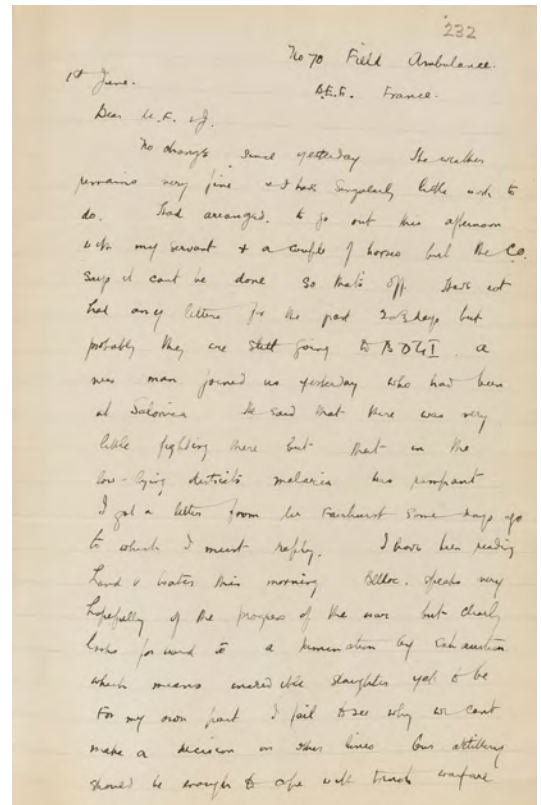 232
No 70 Field Ambulance.
1st June. B.E.F. France.
Dear M.F. & J.
No change since yesterday The weather
remains very fine & I have singularly little work to
do. Had arranged to go out this afternoon
with my servant & a couple of horses but the C.O.
says it cant be done so thats off. Have not
had any letters for the past 2 or 3 days but
probably they are still going to a
new man joined us yesterday who had been
at Salonica He said that there was very
little fighting there but that in the
low-lying districts malaria was rampant
I got a letter from some days ago
to which I must reply. I have been reading
Land & Water this morning Belloc. speaks very
hopefully of the progress of the war but clearly
looks forward to a termination by exhaustion
which means incredible slaughter yet to be
For my own part I fail to see why we cant
make a decision on other lines Our artillery
should be enough to cope with trench warfare